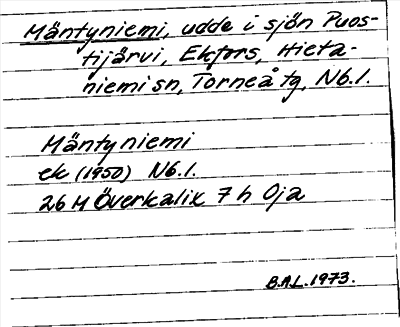 Mäntyniemi, udde i sjön Puos-
tijärvi, Ekfors, Hieta-
niemi sn, Torneå tg, Nb.l.
Mäntyniemi
ek (1950) Nb.l.
26 M Överkalix 7 h Oja
B.A.L. 1973.